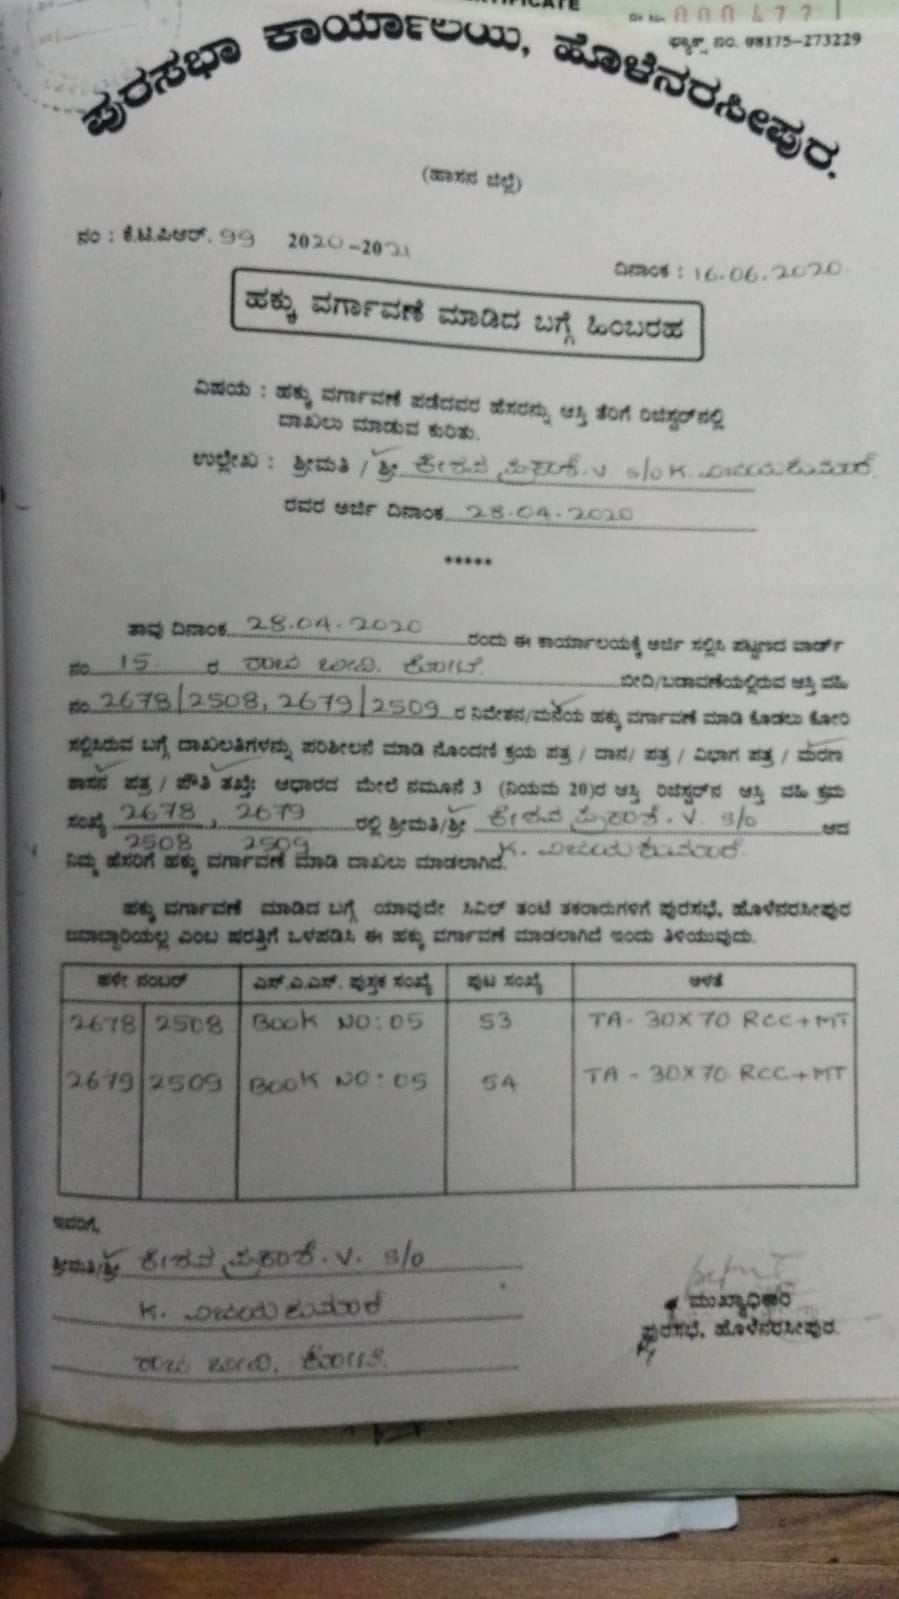 ಪುರಸಭಾ ಕಾರ್ಯಾಲಯ, ಹೊಳೆನರಸೀಪುರ.
000477
ಫ್ಯಾಕ್ಸ್ ನಂ. 08175-273229
(ಹಾಸನ ಜಿಲ್ಲೆ)
ನಂ : ಕೆ.ಟಿ.ಪಿಆರ್. 99 2020-2021
ದಿನಾಂಕ : 16.06.2020.
ಹಕ್ಕು ವರ್ಗಾವಣೆ ಮಾಡಿದ ಬಗ್ಗೆ ಹಿಂಬರಹ
ವಿಷಯ : ಹಕ್ಕು ವರ್ಗಾವಣೆ ಪಡೆದವರ ಹೆಸರನ್ನು ಆಸ್ತಿ ತೆರಿಗೆ ರಿಜಿಸ್ಟರ್‌ನಲ್ಲಿ
ದಾಖಲು ಮಾಡುವ ಕುರಿತು.
ಉಲ್ಲೇಖ : ಶ್ರೀಮತಿ / ಶ್ರೀ ಕೇಶವ ಪ್ರಕಾಶ್. V s/o K. ವಿಜಯಕುಮಾರ್.
ರವರ ಅರ್ಜಿ ದಿನಾಂಕ 28.04.2020
*****
ತಾವು ದಿನಾಂಕ 28.04.2020 ರಂದು ಈ ಕಾರ್ಯಾಲಯಕ್ಕೆ ಅರ್ಜಿ ಸಲ್ಲಿಸಿ ಪಟ್ಟಣದ ವಾರ್ಡ್
ನಂ 15. ರ ಬೀದಿ. ಕೋಟೆ. ಬೀದಿ/ಬಡಾವಣೆಯಲ್ಲಿರುವ ಆಸ್ತಿ ವಹಿ
ನಂ 2678/2508, 2679/2509 ರ ನಿವೇಶನ/ಮನೆಯ ಹಕ್ಕು ವರ್ಗಾವಣೆ ಮಾಡಿ ಕೊಡಲು ಕೋರಿ
ಸಲ್ಲಿಸಿರುವ ಬಗ್ಗೆ ದಾಖಲತಿಗಳನ್ನು ಪರಿಶೀಲನೆ ಮಾಡಿ ನೊಂದಣಿ ಕ್ರಯ ಪತ್ರ / ದಾನ/ ಪತ್ರ / ವಿಭಾಗ ಪತ್ರ / ಮರಣ
ಶಾಸನ ಪತ್ರ / ಪೌತಿ ತಖ್ತೆ ಆಧಾರದ ಮೇಲೆ ನಮೂನೆ 3 (ನಿಯಮ 20)ರ ಆಸ್ತಿ ರಿಜಿಸ್ಟರ್‌ನ ಆಸ್ತಿ ವಹಿ ಕ್ರಮ
ಸಂಖ್ಯೆ 2678, 2679 ರಲ್ಲಿ ಶ್ರೀಮತಿ/ಶ್ರೀ ಕೇಶವ ಪ್ರಕಾಶ್. V. s/o ಆದ
2508 2509 K. ವಿಜಯಕುಮಾರ್.
ನಿಮ್ಮ ಹೆಸರಿಗೆ ಹಕ್ಕು ವರ್ಗಾವಣೆ ಮಾಡಿ ದಾಖಲು ಮಾಡಲಾಗಿದೆ.
ಹಕ್ಕು ವರ್ಗಾವಣೆ ಮಾಡಿದ ಬಗ್ಗೆ ಯಾವುದೇ ಸಿವಿಲ್ ತಂಟೆ ತಕರಾರುಗಳಿಗೆ ಪುರಸಭೆ, ಹೊಳೆನರಸೀಪುರ
ಜವಾಬ್ದಾರಿಯಲ್ಲ ಎಂಬ ಷರತ್ತಿಗೆ ಒಳಪಡಿಸಿ ಈ ಹಕ್ಕು ವರ್ಗಾವಣೆ ಮಾಡಲಾಗಿದೆ ಇಂದು ತಿಳಿಯುವುದು.
ಹಳೇ ನಂಬರ್ ಎಸ್.ಎ.ಎಸ್. ಪುಸ್ತಕ ಸಂಖ್ಯೆ ಪುಟ ಸಂಖ್ಯೆ ಅಳತೆ
2678 2508 BOOK NO: 05 53 TA- 30X70 RCC+MT
2679 2509 BOOK NO: 05 54 TA - 30X70 RCC+MT
ಇವರಿಗೆ,
ಶ್ರೀಮತಿ/ಶ್ರೀ ಕೇಶವ ಪ್ರಕಾಶ್. V. s/o
K. ವಿಜಯಕುಮಾರ್
ಬೀದಿ. ಕೋಟೆ.
ಮುಖ್ಯಾಧಿಕಾರಿ
ಪುರಸಭೆ, ಹೊಳೆನರಸೀಪುರ.